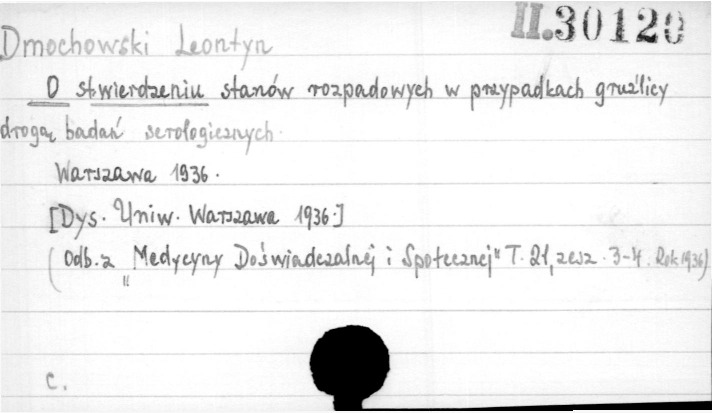 II.30120
Dmochowski Leontyn
O stwierdzeniu stanów rozpadowych w przypadkach gruźlicy
drogą badań serologicznych.
Warszawa 1936.
[Dys. Uniw. Warszawa 1936.]
(Odb. z „Medycyny Doświadczalnej i Społecznej" T. 21, zesz. 3-4. Rok 1936)
c.